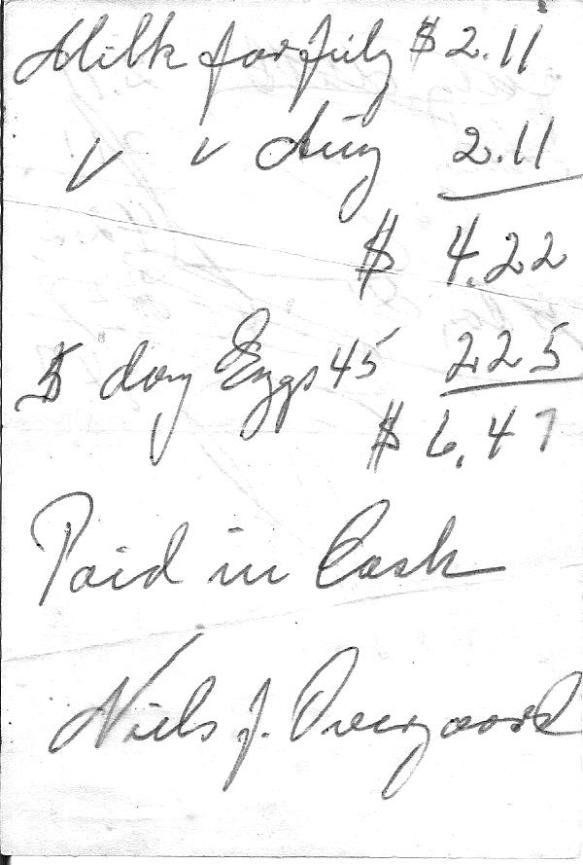 Milk for July $ 2.11
" " Aug 2.11
$ 4.22
5 doz Eggs 45 2.25
$ 6.47
Paid in Cash
Niels J. Overgaard